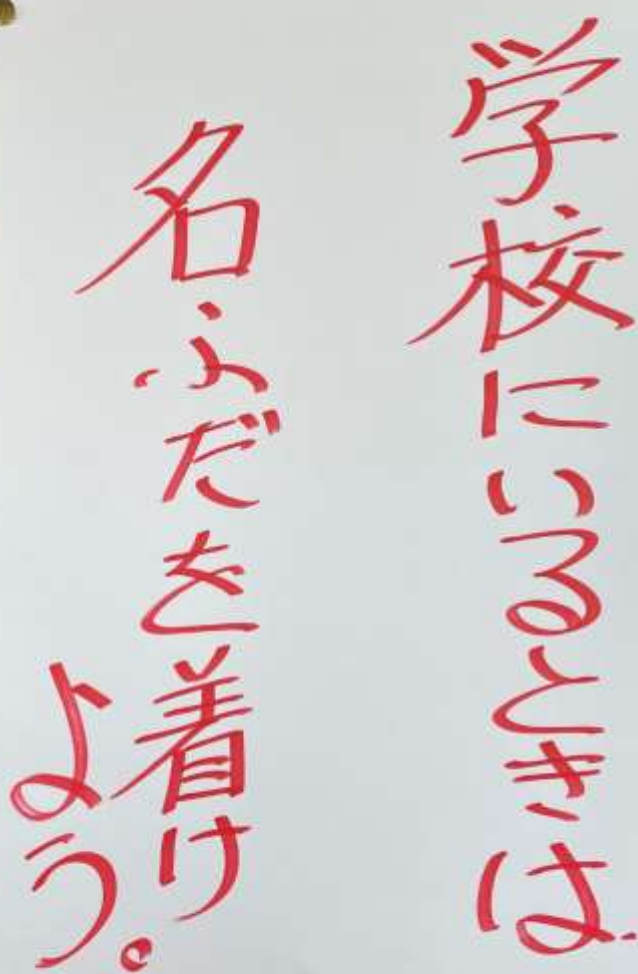 学校にいるときは
名ふだを着け
よう。